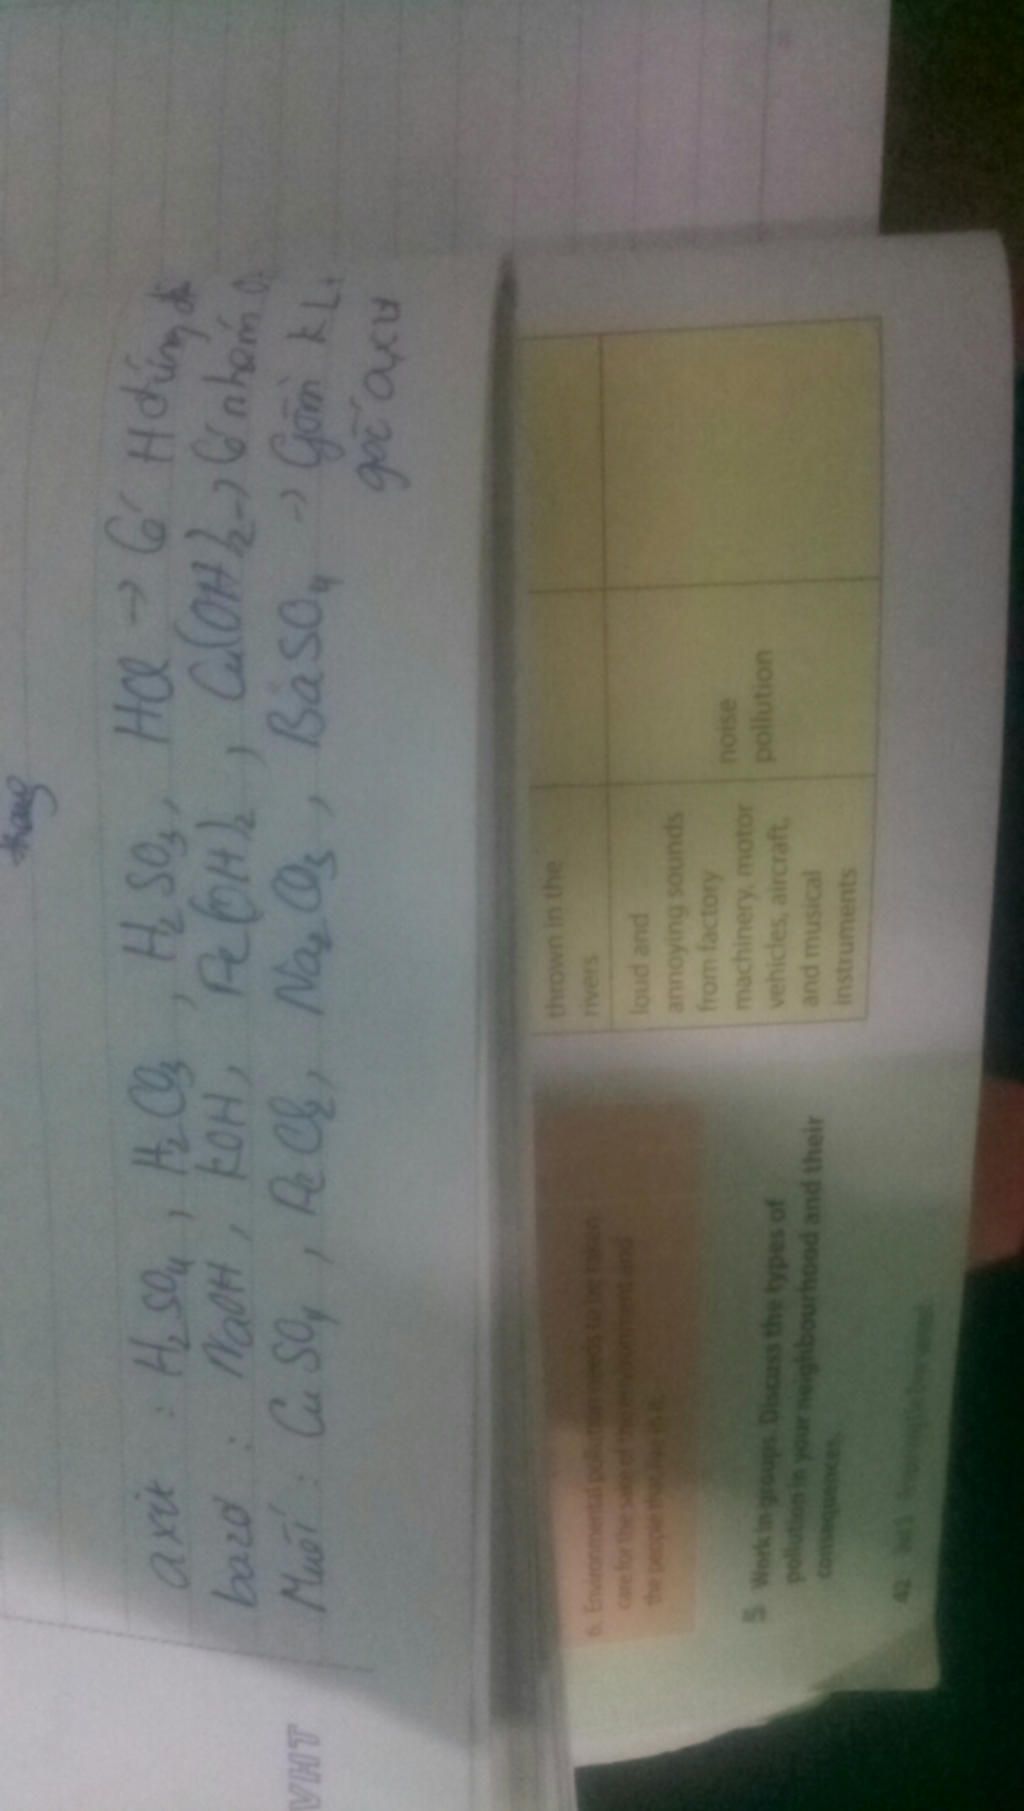 trang
axit : H₂SO₄, H₂CO₃, H₂SO₃, HCl → Có H đứng đ
bazơ : NaOH, KOH, Fe(OH)₂, Cu(OH)₂ → Có nhóm O
Muối : CuSO₄, FeCl₂, Na₂CO₃, BaSO₄ → Gồm KL,
gốc axit
VHT
thrown in the
rivers
loud and
annoying sounds
from factory
machinery, motor
vehicles, aircraft,
and musical
instruments
noise
pollution
6. Environmental pollution needs to be taken
care for the sake of the environment and
the people that live in it.
5 Work in groups. Discuss the types of
pollution in your neighbourhood and their
consequences.
42